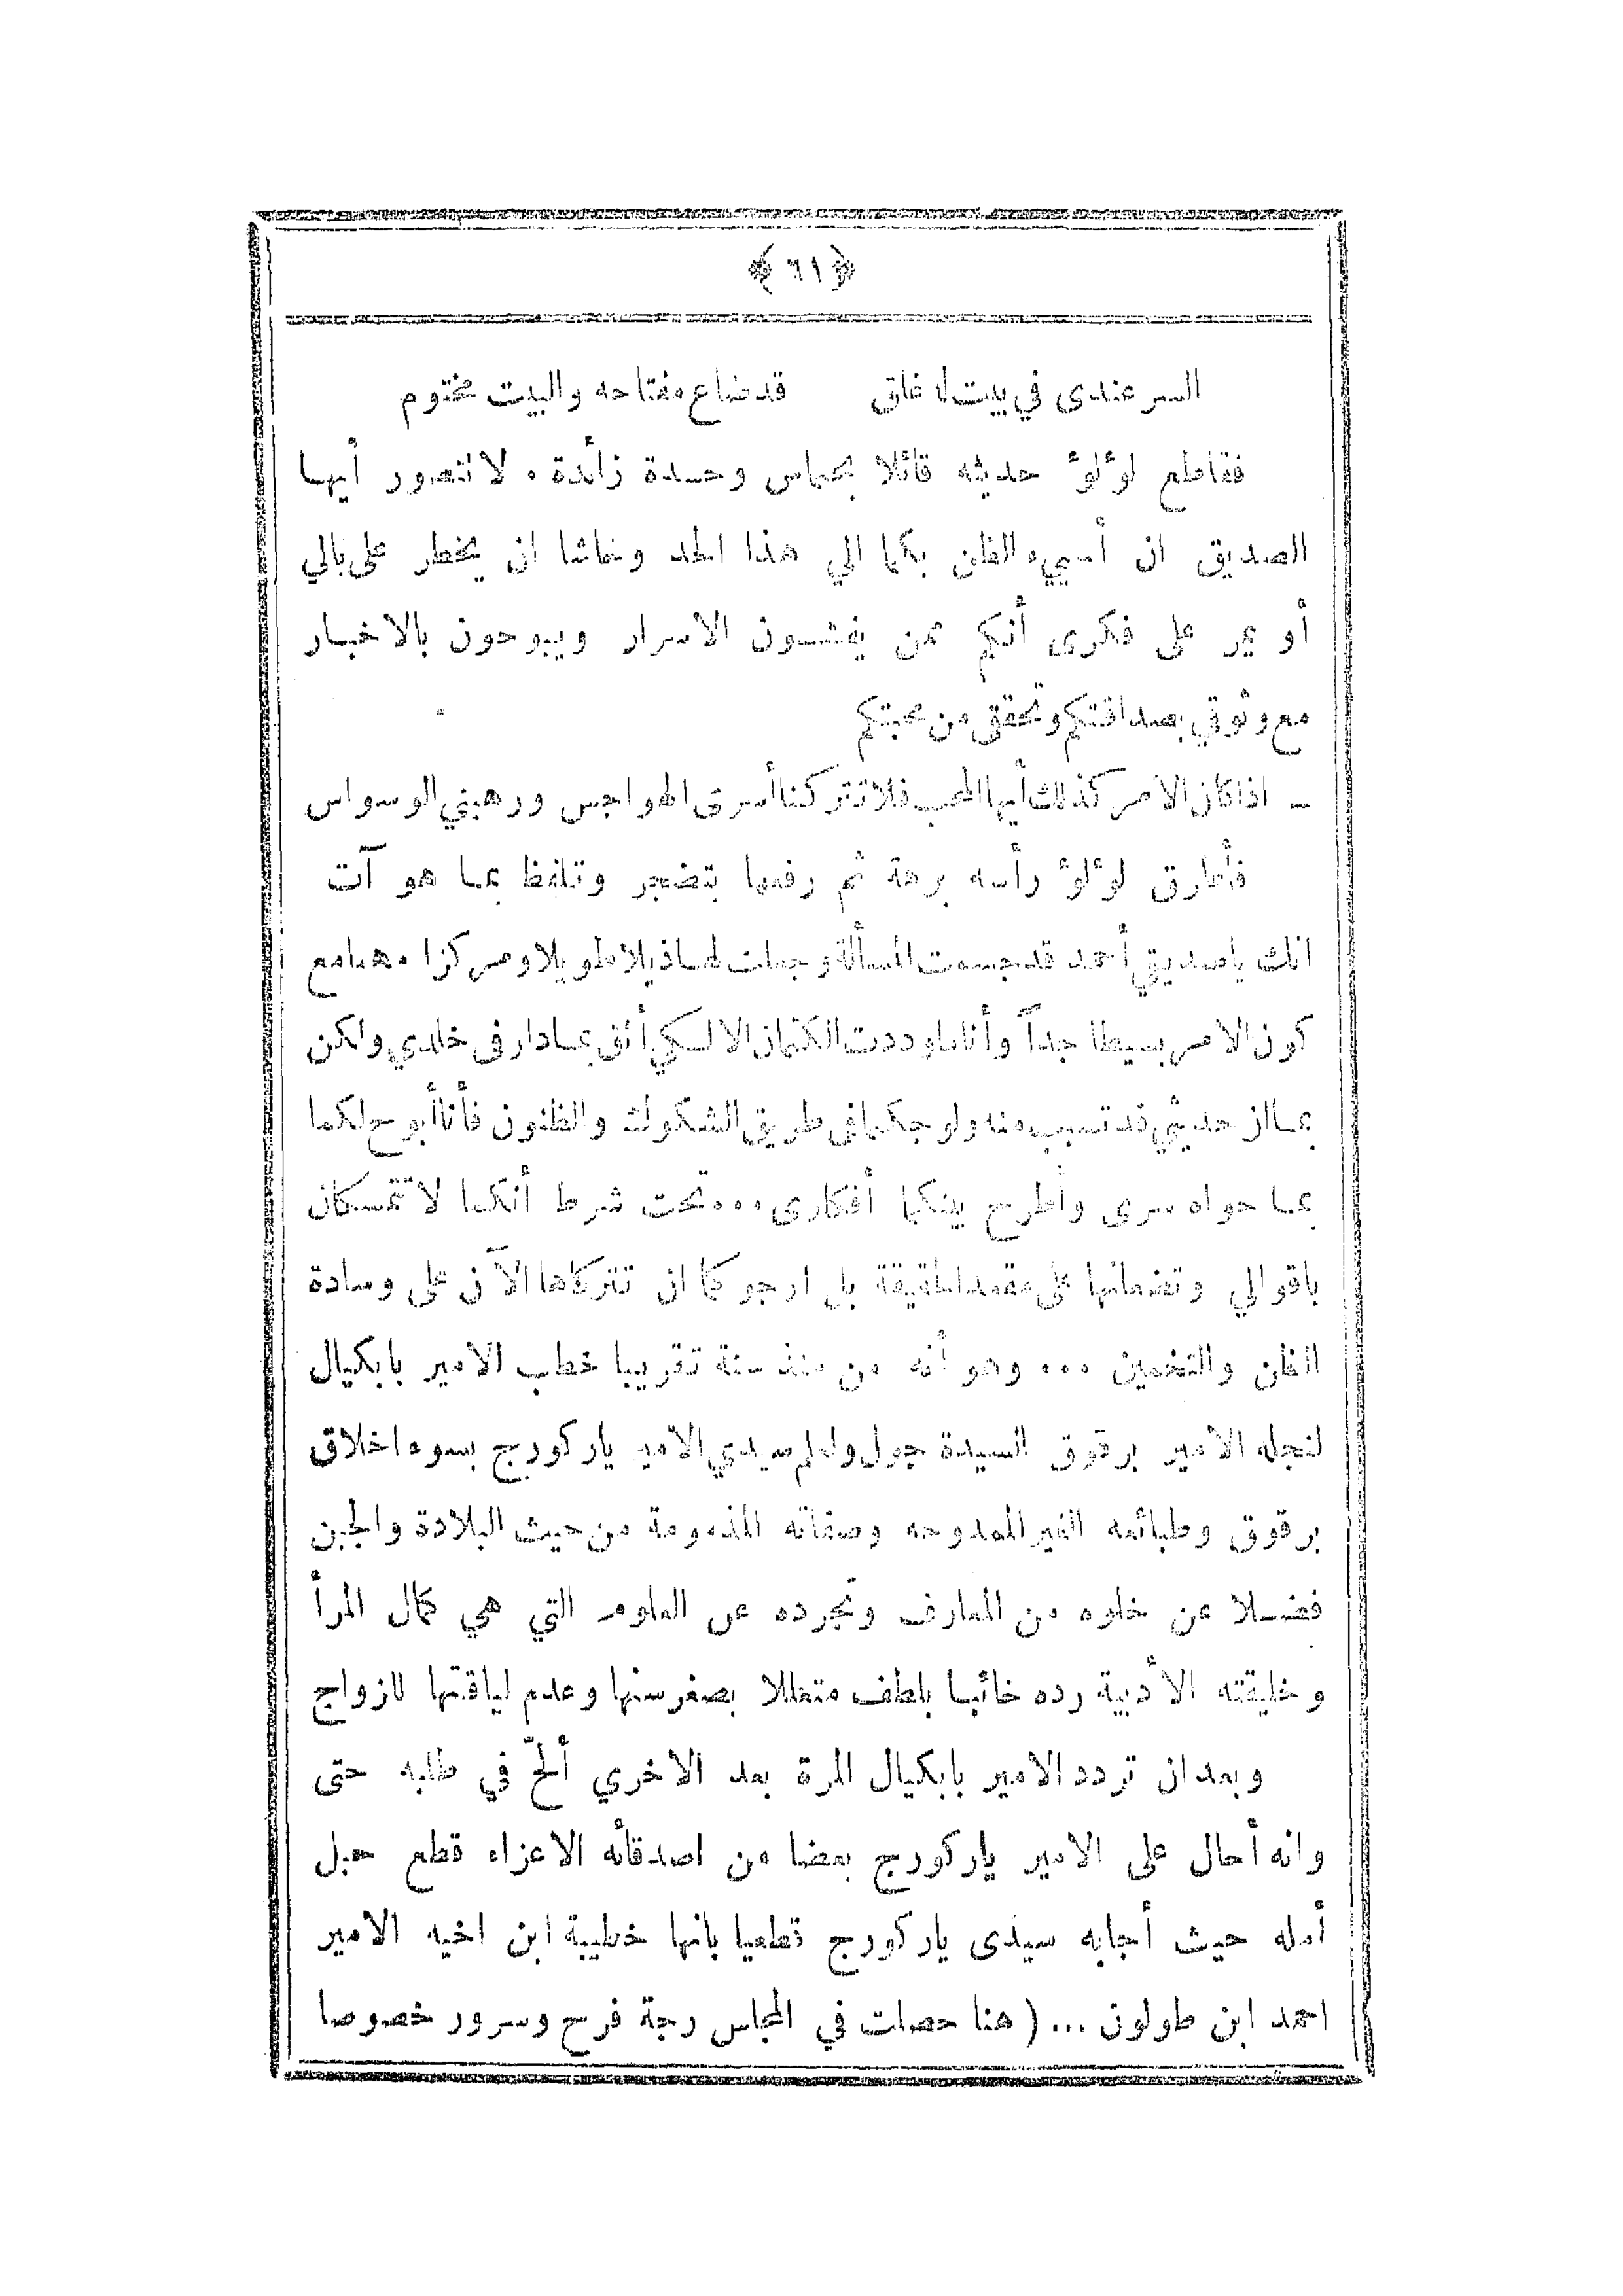 ﴿ ٦١ ﴾
السر عندى في بيت له غلق قد ضاع مفتاحه والبيت مختوم
فقاطع لؤلؤ حديثه قائلا بحماس وحدة زائدة ٠ لا تتصور أيها
الصديق ان أسيء الظن بكما الي هذا الحد وحاشا ان يخطر على بالي
أو يمر على فكرى أنكم ممن يفشون الاسرار ويبوحون بالاخبار
مع وثوقي بصداقتكم وتحققى من محبتكم
ـ اذا كان الامر كذلك أيها المحب فلا تتركنا أسرى الهواجس ورهيني الوسواس
فأطرق لؤلؤ رأسه برهة ثم رفعها بتضجر وتلفظ بما هو آت
انك ياصديقي أحمد قد جسمت المسألة وجعلت لها ذيلا طويلا ومركزا مهما مع
كون الامر بسيطا جداً وأنا ما وددت الكتمان الا لكي أثق بما دار فى خلدي ولكن
بما ان حديثي قد تسبب منه ولوجكما فى طريق الشكوك والظنون فأنا أبوح لكما
بما حواه سرى وأطرح بينكما أفكارى ٠٠٠ تحت شرط أنكما لا تتمسكان
باقوالي وتضعانها على مقعد الحقيقة بل ارجوكما ان تتركاها الآن على وسادة
الظن والتخمين ٠٠٠ وهو أنه من منذ سنة تقريبا خطب الامير بابكيال
لنجله الامير برقوق السيدة جول ولعلم سيدي الامير ياركورج بسوء اخلاق
برقوق وطبائعه الغير الممدوحه وصفاته المذمومة من حيث البلادة والجبن
فضلا عن خلوه من المعارف وتجرده عن العلوم التي هي كمال المرأ
وخليقته الأدبية رده خائبا بلطف متعللا بصغر سنها وعدم لياقتها للزواج
وبعد ان تردد الامير بابكيال المرة بعد الاخري ألحّ في طلبه حتى
وانه أحال على الامير ياركورج بعضا من اصدقائه الاعزاء قطع حبل
أمله حيث أجابه سيدى ياركورج قطعيا بانها خطيبة ابن اخيه الامير
احمد ابن طولون ... ( هنا حصلت في المجلس رجة فرح وسرور خصوصا